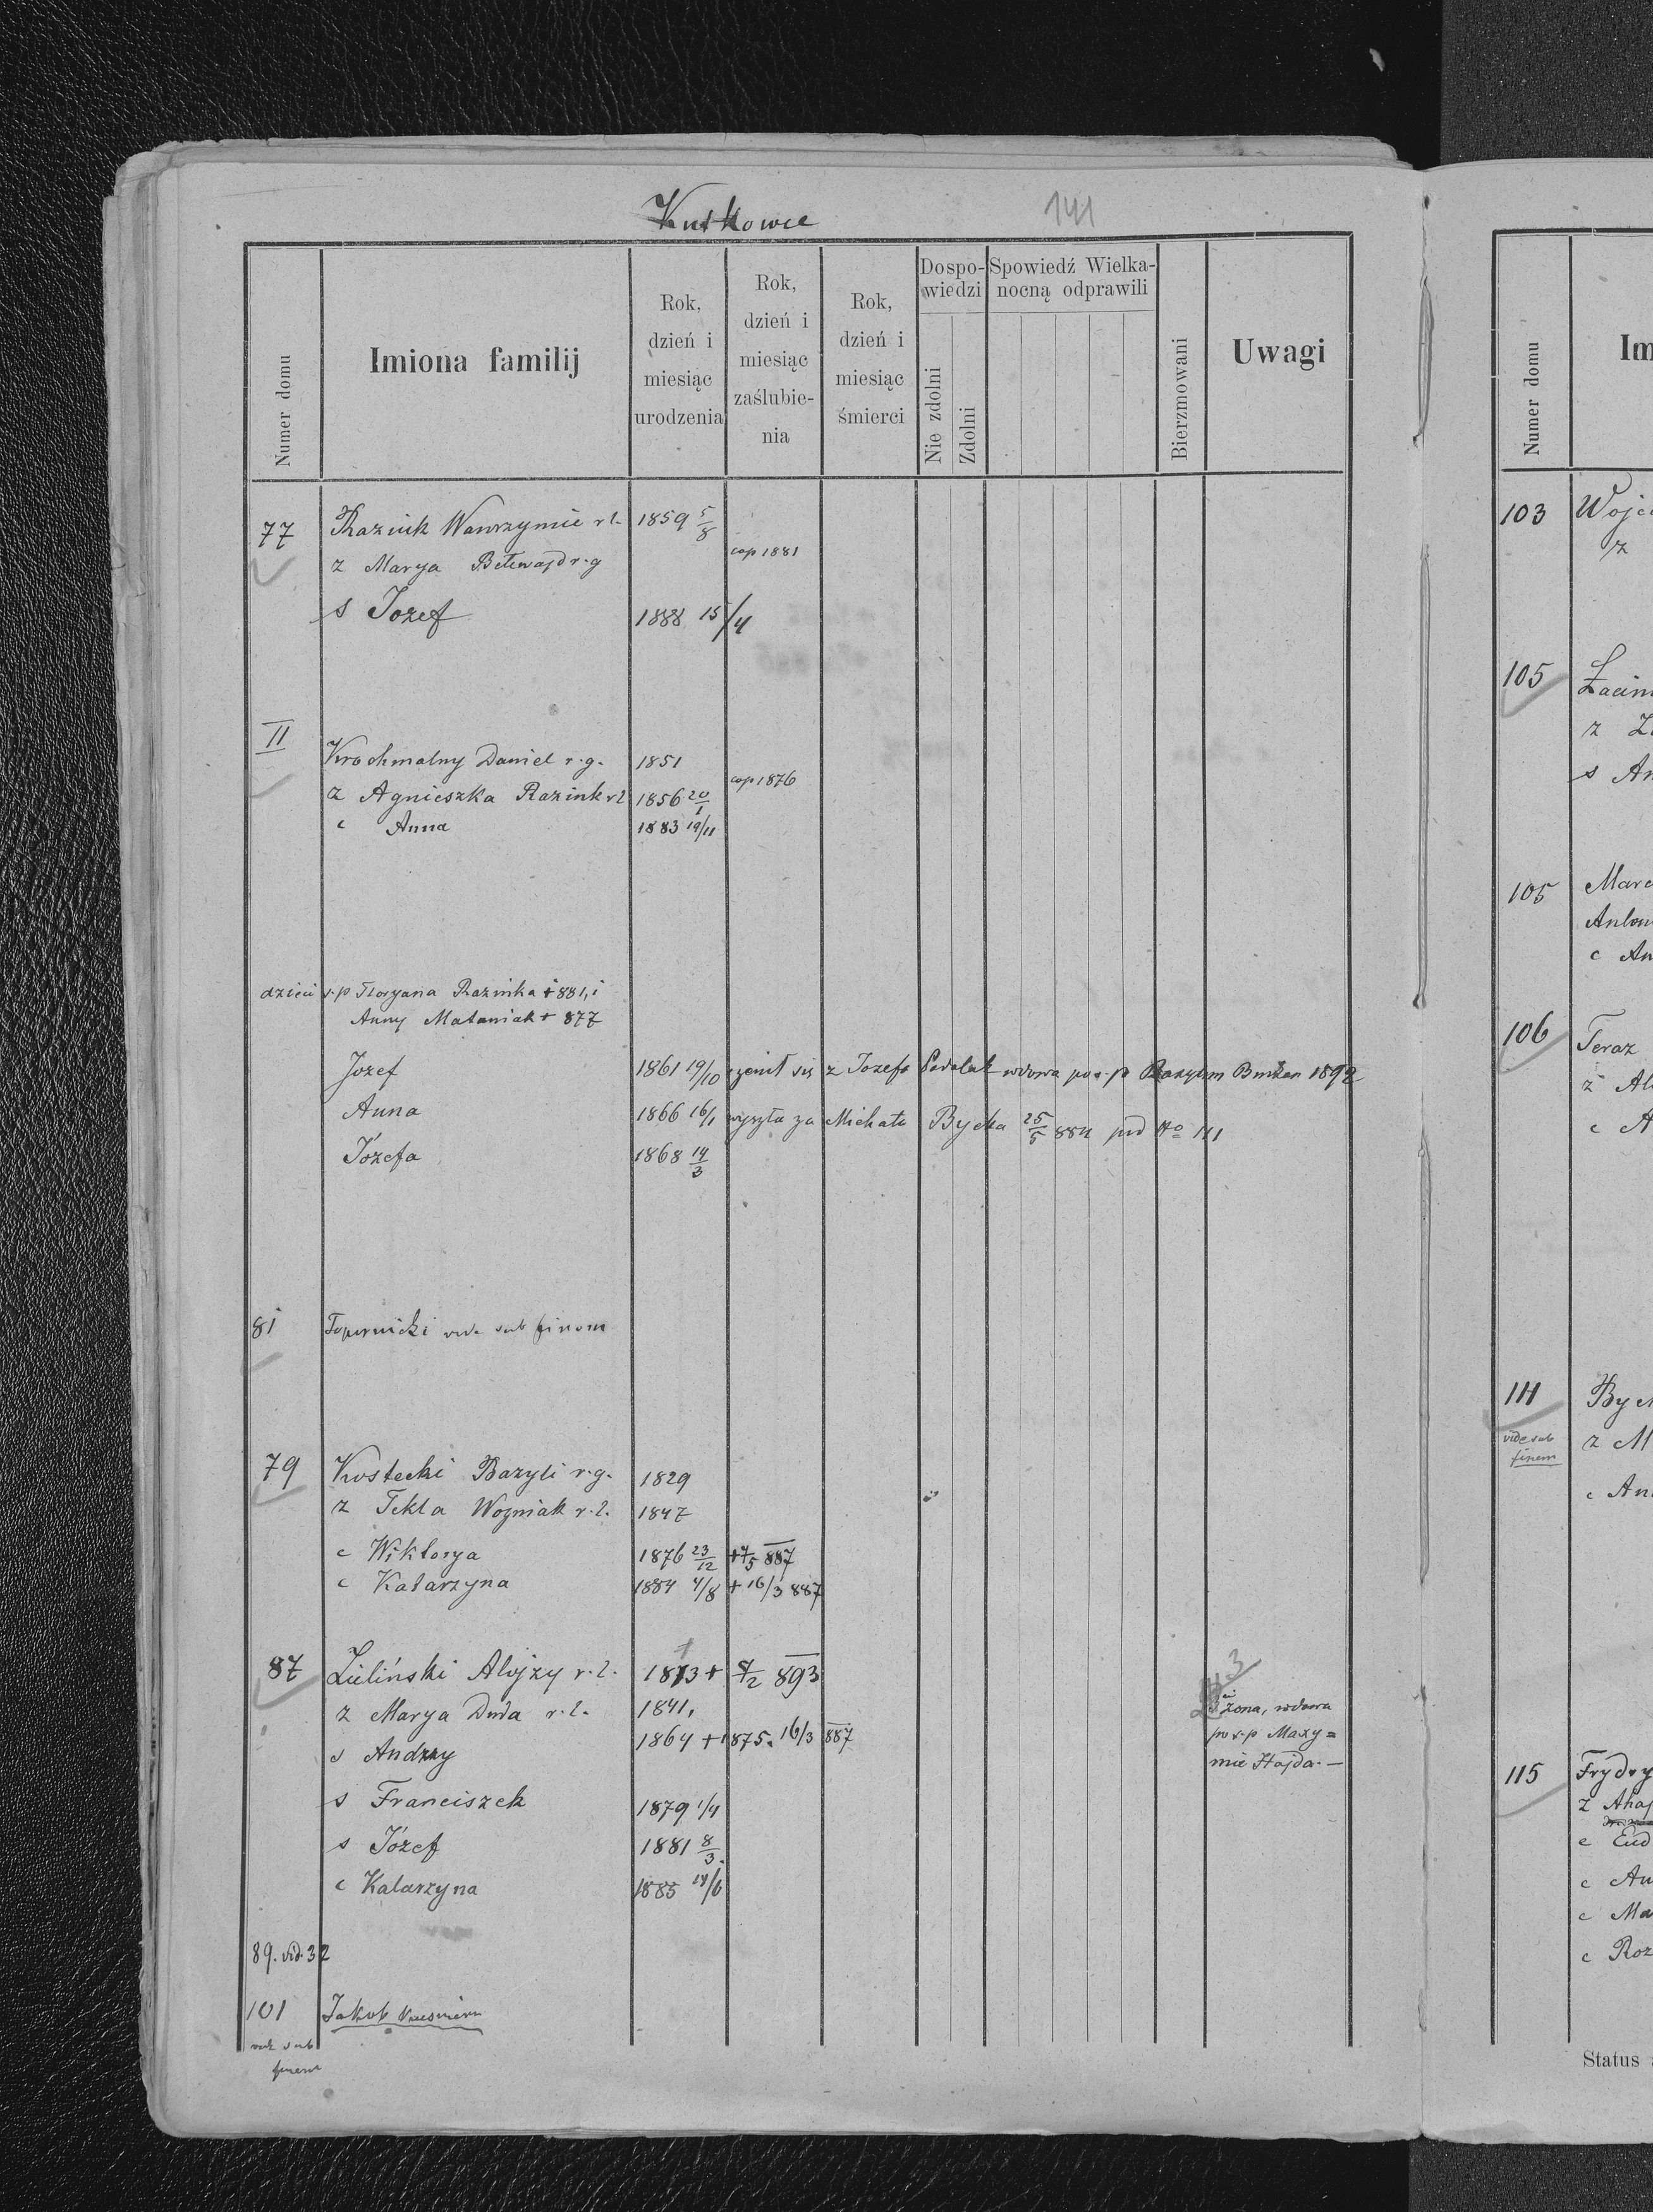 Kutkowce 141
Numer domu
Imiona familij
Rok, dzień i miesiąc urodzenia
Rok, dzień i miesiąc zaślubie-nia
Rok, dzień i miesiąc śmierci
Dospo-wiedzi
Nie zdolni
Zdolni
Spowiedź Wielka-nocną odprawili
Bierzmowani
Uwagi
77 Raźnik Wawrzyniec r.l. 1859 5/8
z Marya r.g cop 1881
s Jozef 1888 15/4
II
Krochmalny Daniel r.g. 1851
cop 1876
z Agnieszka Razink r.l 1856 20/1
c Anna 1883 19/11
dzieci s.p Floryana Raznika + 881, i
Anny Mataniak + 877
Jozef 1861 19/10 się z Jozefa wdowa po s.p 1892
Anna 1866 16/1 wyszła za Michała Bycka 25/5 884 pod No 111
Józefa 1868 19/3
81 vide sub finem
79 Kostecki Bazyli r.g. 1829
z Tekla Wozniak r.l. 1847
c Wiktorya 1876 23/12 + 4/5 887
c Katarzyna 1884 4/8 + 16/3 887
87 Zieliński Alojzy r.l. 1813 + 893
z Marya Duda r.l. 1841,
s Andrzy 1864 + 1875. 16/3 887
żona, wdowa
po s.p Maxy=
mie Hajda. —
s Franciszek 1879 1/4
s Józef 1881 8/3.
c Katarzyna 1885 /6
89. vid. 32
101 Jakob
vide sub
finem
Numer domu
Im
103 Wojc
z
105
z
s An
105 Marc
Anton
c An
106 Teraz
z Al
c A
111 Byc
vide sub
finem
z M
c An
115 Frydry
z Ahaf
c Eud
c An
c Ma
c Roz
Status